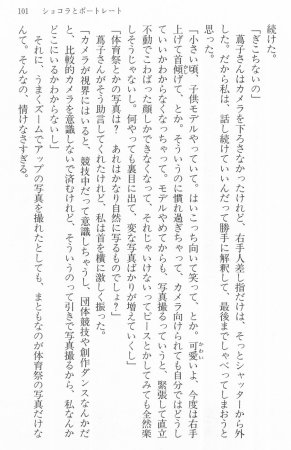 101　ショコラとポートレート
続けた。
「ぎこちないの」
蔦子さんはカメラを下ろさなかったけれど、右手人差し指だけは、そっとシャッターから外
した。だから私は、話し続けていいんだって勝手に解釈して、最後までしゃべってしまおうと
思った。
「小さい頃、子供モデルやっていて。はいこっち向いて笑って、とか。可愛いよ、今度は右手
上げて首傾げて、とか。そういうのに慣れ過ぎちゃって、カメラ向けられても自分ではどうし
ていいかわからなくなっちゃって。モデルやめてからも、写真撮るっていうと、緊張して直立
不動でこわばった顔しかできなくなって、それじゃいけないってピースとかしてみても全然楽
しそうじゃないし。何やっても裏目に出て、変な写真ばかりが増えていくし」
「体育祭とかの写真は？　あれはかなり自然に写るものでしょ？」
蔦子さんがそう助言してくれたけれど、私は首を横に激しく振った。
「カメラが視界にはいると、競技中だって意識しちゃうし、団体競技や創作ダンスなんかだ
と、比較的カメラを意識しないで済むけれど、そういうのって引きで写真撮るから、私なんか
どこにいるかわからないし」
それに、うまくズームでアップの写真を撮れたとしても、まともなのが体育祭の写真だけな
んて。そんなの、情けなさすぎる。